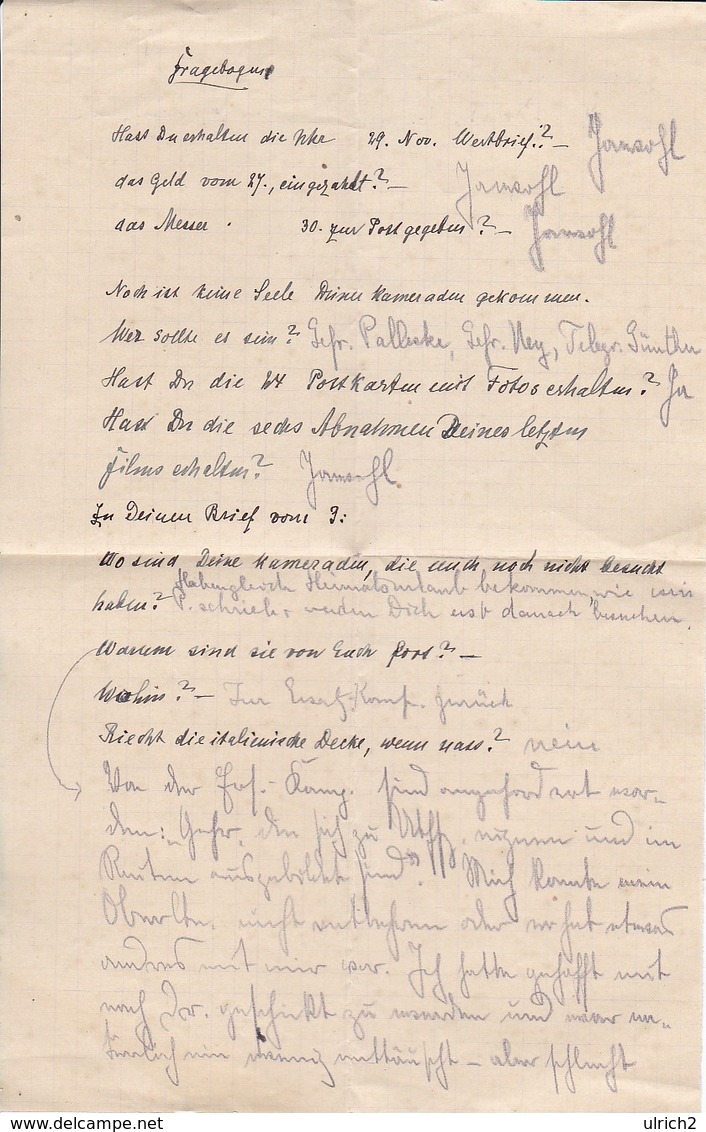 Fragebogen
Hast Du erhalten die 29. Nov. Wertbrief?– Jawohl
das Geld vom 27., eingezahlt?– Jawohl
das Messer 30. zur Post gegeben?– Jawohl
Noch ist keine Seele Deiner Kameraden gekommen.
Wer sollte es sein? Gefr. Palleske, Gefr. Ney, Telegr. Günther
Hast Du die 24 Postkarten mit Fotos erhalten? Ja
Hast Du die sechs Abnahmen Deines letzten
Films erhalten? Jawohl.
In Deinem Brief vom 3:
Wo sind Deine Kameraden, die euch noch nicht besucht
Haben gleich Heimaturlaub bekommen, wie mir
haben? P. schrieb, werden Dich erst danach besuchen.
Warum sind sie von Euch fort?–
Wohin?– Zur Ersatz-Komp. zurück
Riecht die italienische Decke, wenn nass? nein
Von der Ers.-Komp. sind angefordert wor-
den: „Gefr., die sich zu Uffz. eignen und im
Reiten ausgebildet sind". Mich konnte mein
Oberltn. nicht entbehren oder er hat etwas
andres mit mir vor. Ich hatte gehofft mit
nach Fr. geschickt zu werden und war na-
türlich ein wenig enttäuscht – aber schlecht
ulrich2